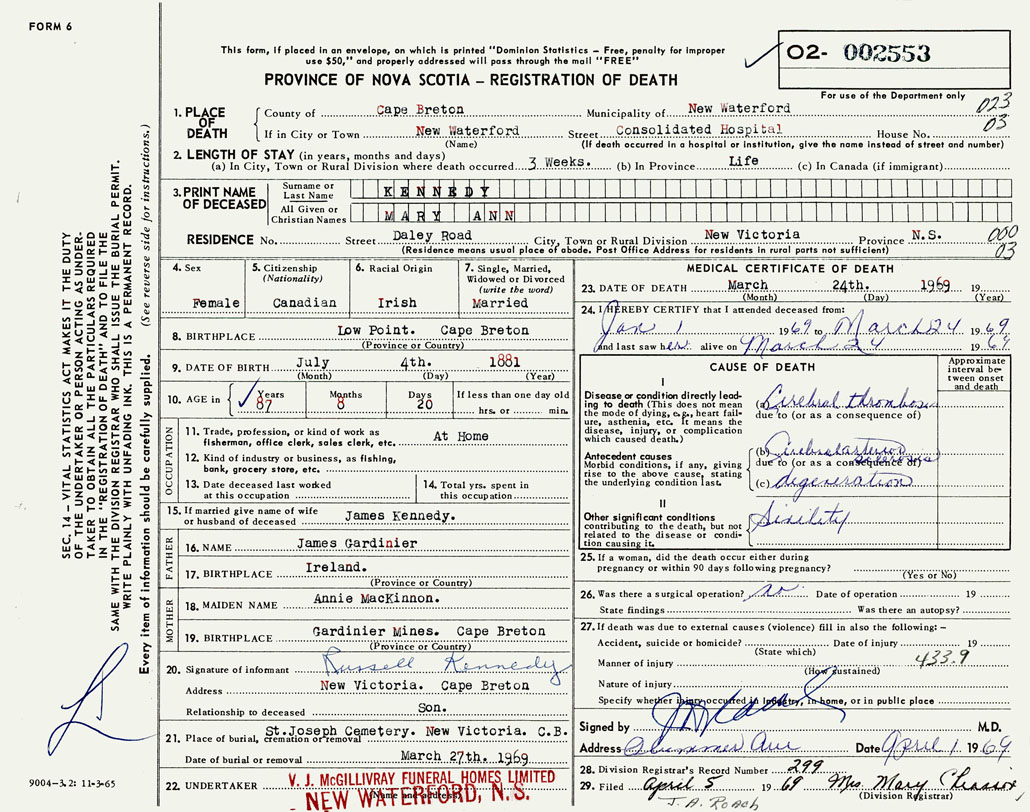 FORM 6
This form, if placed in an envelope, on which is printed "Dominion Statistics – Free, penalty for improper
use $50," and properly addressed will pass through the mail "FREE"
PROVINCE OF NOVA SCOTIA – REGISTRATION OF DEATH
02- 002553
For use of the Department only
1. PLACE OF DEATH
County of Cape Breton Municipality of New Waterford 023
If in City or Town New Waterford Street Consolidated Hospital House No. 03
(Name) (If death occurred in a hospital or institution, give the name instead of street and number)
2. LENGTH OF STAY (in years, months and days)
(a) In City, Town or Rural Division where death occurred 3 Weeks. (b) In Province Life (c) In Canada (if immigrant)
3. PRINT NAME OF DECEASED
Surname or Last Name KENNEDY
All Given or Christian Names MARY ANN
RESIDENCE No. Street Daley Road City, Town or Rural Division New Victoria Province N.S. 000
(Residence means usual place of abode. Post Office Address for residents in rural parts not sufficient) 03
4. Sex Female
5. Citizenship (Nationality) Canadian
6. Racial Origin Irish
7. Single, Married, Widowed or Divorced (write the word) Married
8. BIRTHPLACE Low Point. Cape Breton
(Province or Country)
9. DATE OF BIRTH July 4th. 1881
(Month) (Day) (Year)
10. AGE in Years 87 Months 8 Days 20 If less than one day old hrs. or min.
OCCUPATION
11. Trade, profession, or kind of work as fisherman, office clerk, sales clerk, etc. At Home
12. Kind of industry or business, as fishing, bank, grocery store, etc.
13. Date deceased last worked at this occupation
14. Total yrs. spent in this occupation
15. If married give name of wife or husband of deceased James Kennedy.
FATHER
16. NAME James Gardinier
17. BIRTHPLACE Ireland.
(Province or Country)
MOTHER
18. MAIDEN NAME Annie MacKinnon.
19. BIRTHPLACE Gardinier Mines. Cape Breton
(Province or Country)
20. Signature of informant Russell Kennedy
Address New Victoria. Cape Breton
Relationship to deceased Son.
21. Place of burial, cremation or removal St.Joseph Cemetery. New Victoria. C.B.
Date of burial or removal March 27th. 1969
22. UNDERTAKER V. J. McGILLIVRAY FUNERAL HOMES LIMITED
(Name and address)
NEW WATERFORD, N.S.
MEDICAL CERTIFICATE OF DEATH
23. DATE OF DEATH March 24th. 1969 19
(Month) (Day) (Year)
24. I HEREBY CERTIFY that I attended deceased from:
Jan 1 1969 to March 24 1969
and last saw her alive on March 24 1969
CAUSE OF DEATH
Approximate interval between onset and death
I
Disease or condition directly leading to death (This does not mean the mode of dying, e.g., heart failure, asthenia, etc. It means the disease, injury, or complication which caused death.)
(a) Cerebral thrombosis
due to (or as a consequence of)
Antecedent causes
Morbid conditions, if any, giving rise to the above cause, stating the underlying condition last.
(b)
due to (or as a consequence of)
(c) degeneration
II
Other significant conditions contributing to the death, but not related to the disease or condition causing it.
Sinility
25. If a woman, did the death occur either during pregnancy or within 90 days following pregnancy?
(Yes or No)
26. Was there a surgical operation? no Date of operation 19
State findings Was there an autopsy?
27. If death was due to external causes (violence) fill in also the following: –
Accident, suicide or homicide? Date of injury 19
(State which)
Manner of injury 433.9
(How sustained)
Nature of injury
Specify whether injury occurred in industry, in home, or in public place
Signed by M.D.
Address Plummer Ave Date April 1 1969
28. Division Registrar's Record Number 299
29. Filed April 5 1969 Mrs. Mary Chiasson
(Division Registrar)
J.A. Roach
SEC. 14 – VITAL STATISTICS ACT MAKES IT THE DUTY
OF THE UNDERTAKER OR PERSON ACTING AS UNDER-
TAKER TO OBTAIN ALL THE PARTICULARS REQUIRED
IN THE "REGISTRATION OF DEATH" AND TO FILE THE
SAME WITH THE DIVISION REGISTRAR WHO SHALL ISSUE THE BURIAL PERMIT.
WRITE PLAINLY WITH UNFADING INK. THIS IS A PERMANENT RECORD.
Every item of information should be carefully supplied. (See reverse side for instructions.)
9004–3.2: 11-3-65